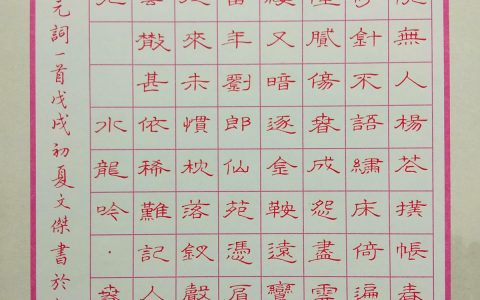 無人楊花撲帳春
針不語繡床倚遍
膩傷春成怨盡雲
又暗逐金鞍遠鸞
年劉郎仙苑憑肩
來未慣枕落釵聲
甚依稀難記人
水龍吟·
元詞一首戊戌初夏文傑書於